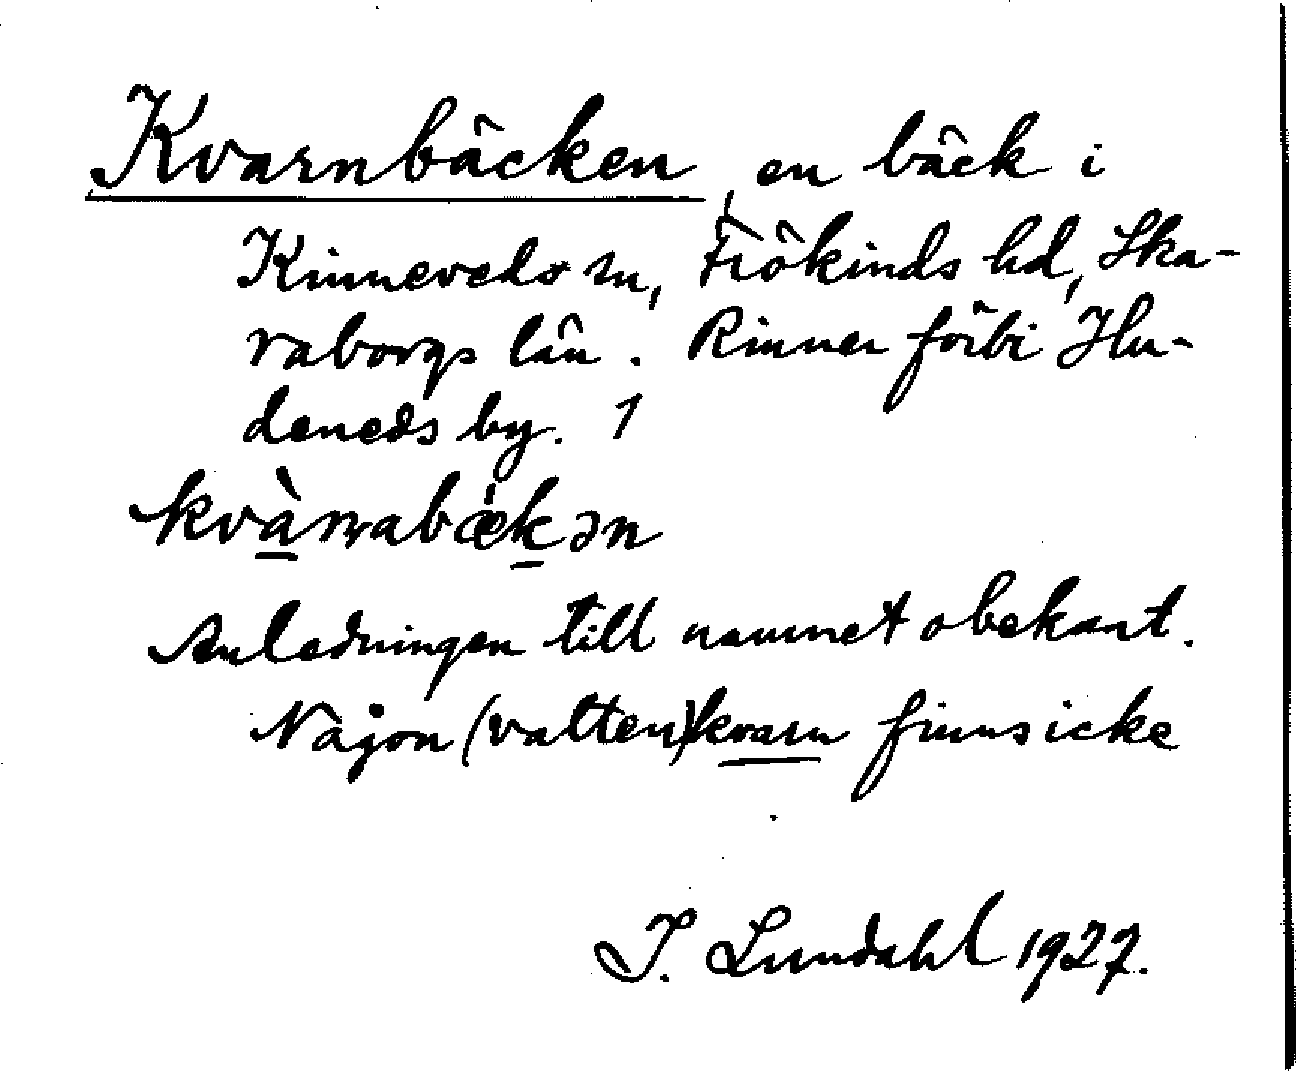 Kvarnbäcken, en bäck i
Kinneveds sn, Frökinds hd, Ska-
raborgs län. Rinner förbi Hu-
deneds by. 1
kvànnabækən
Anledningen till namnet obekant.
Någon (vatten)kvarn finns icke
I. Lundahl 1927.